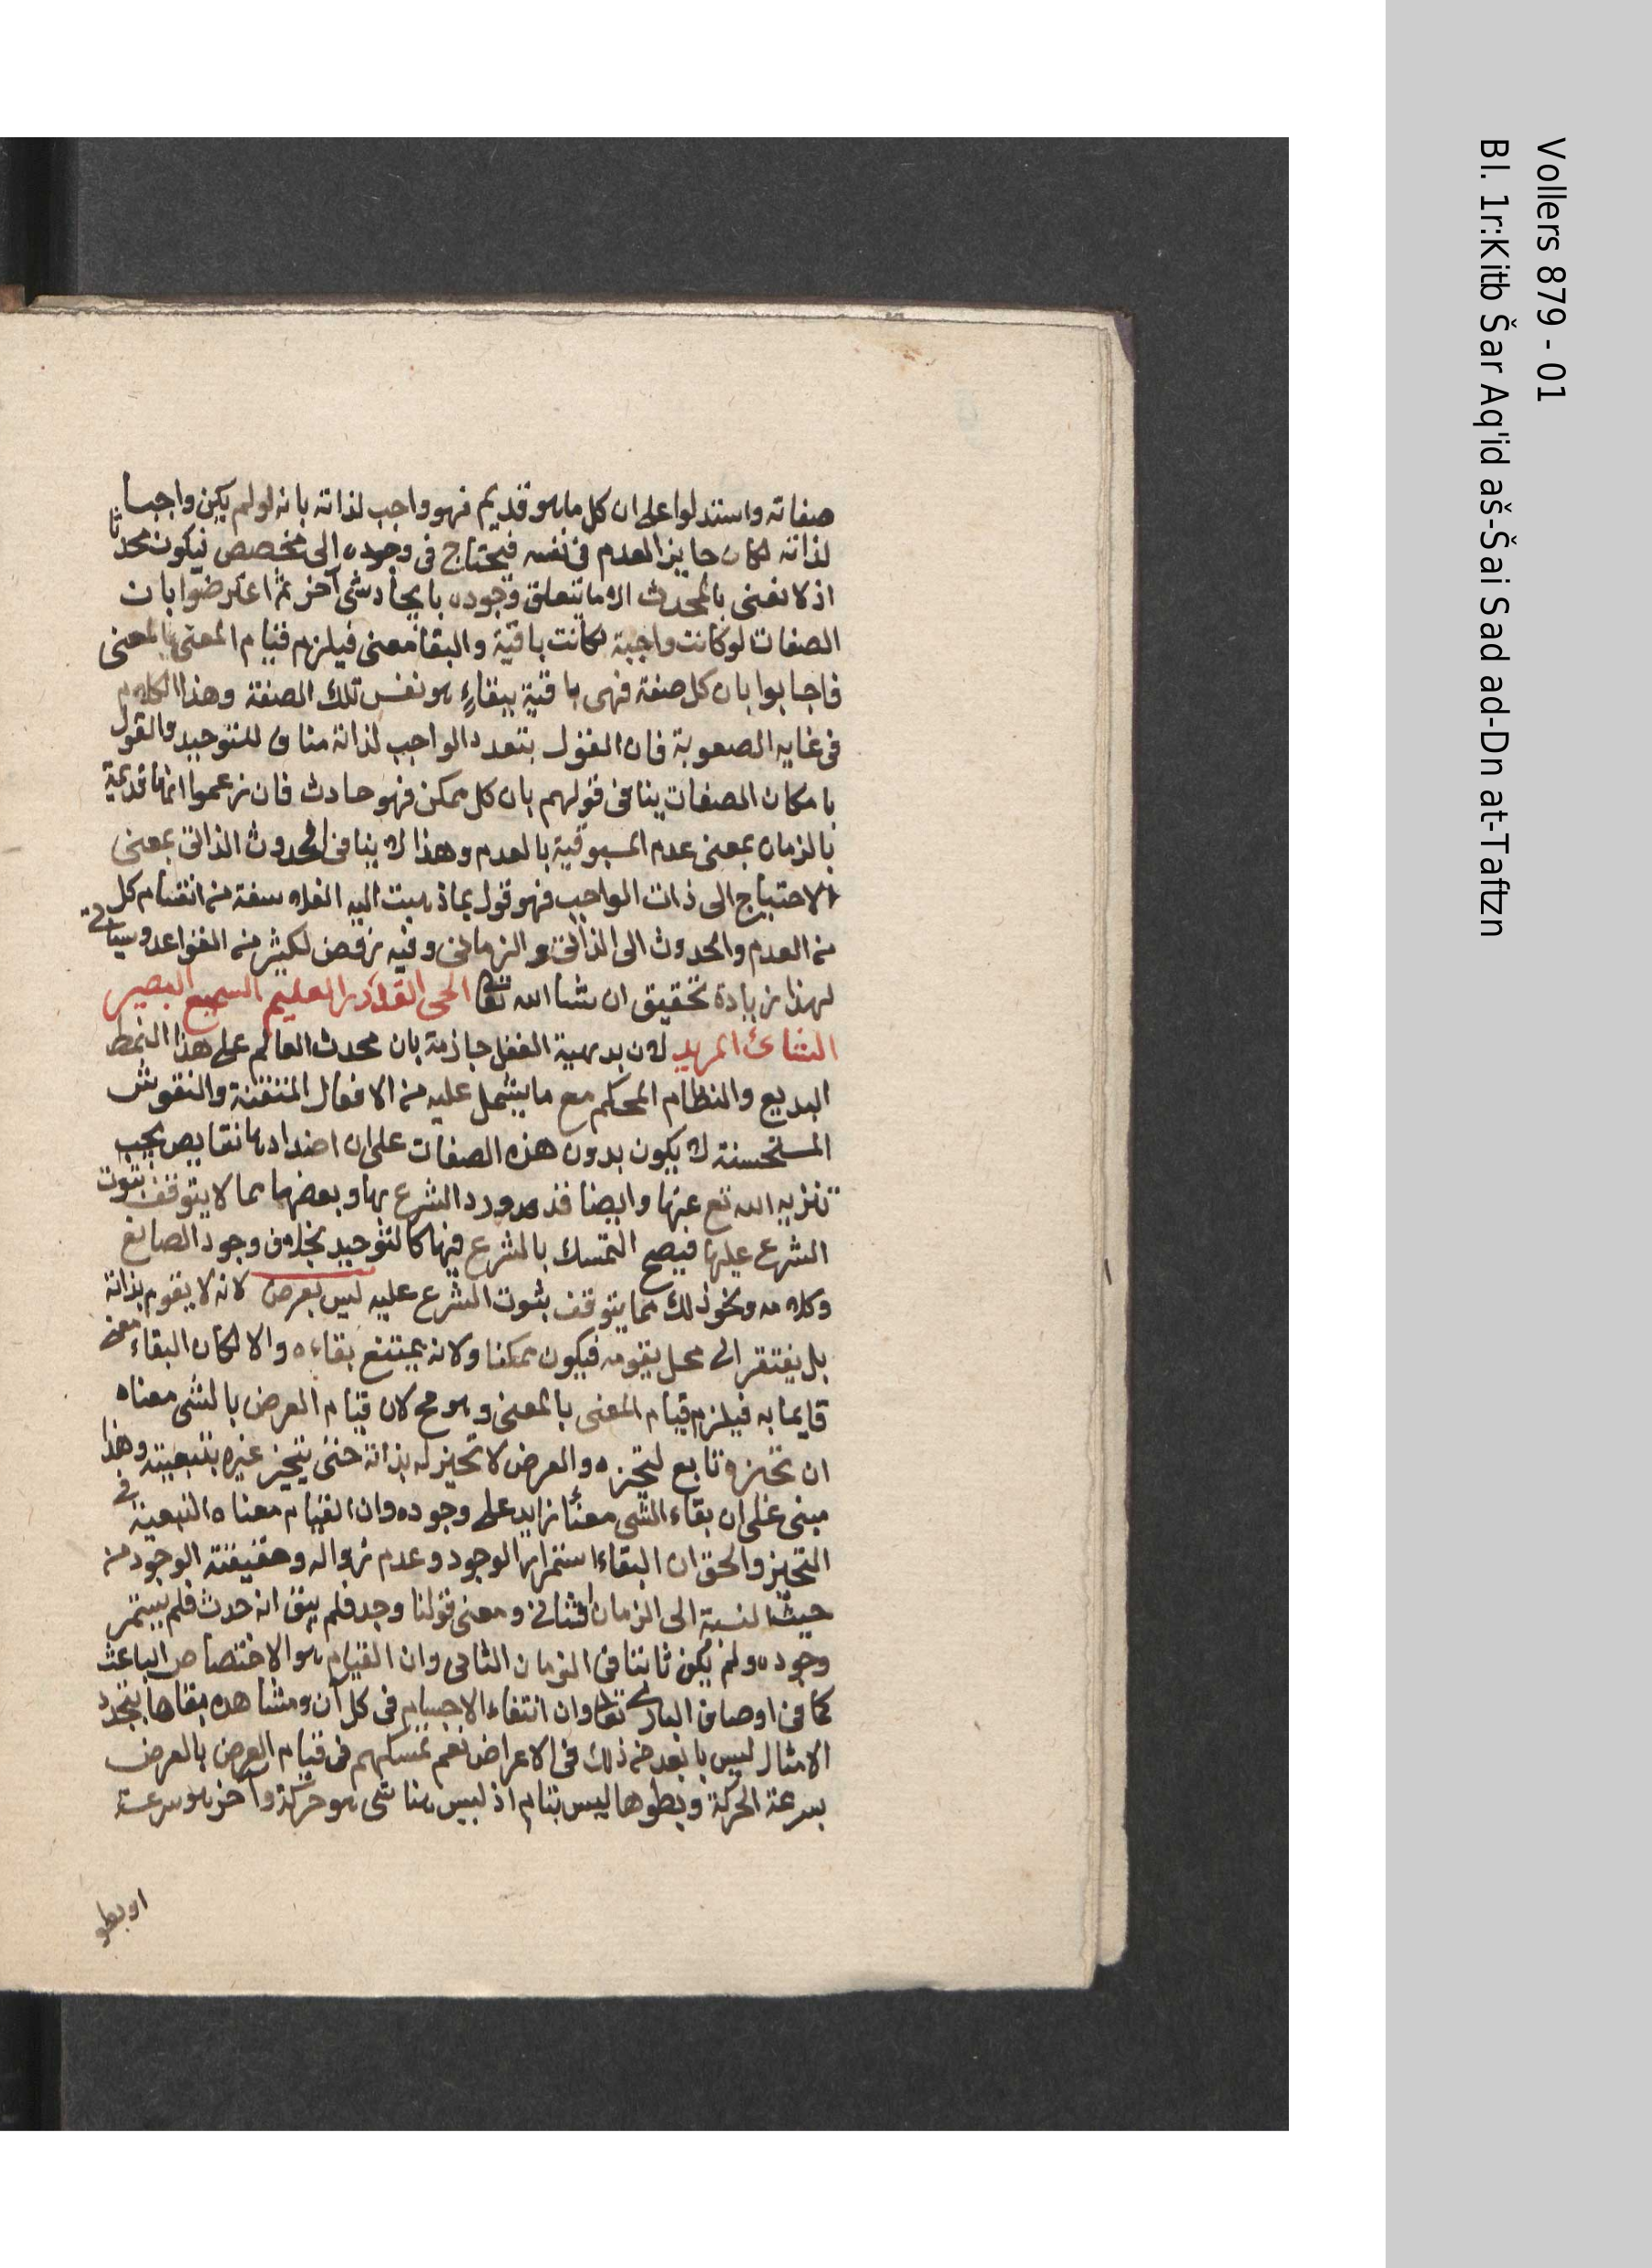 صفاته واستدلوا على ان كل ما هو قديم فهو واجب لذاته بانه لو لم يكن واجبا
لذاته لكان جايز العدم فى نفسه فيحتاج فى وجوده الى مخصص فيكون محدثا
اذ لا نعنى بالمحدث الا ما يتعلق وجوده بايجاد شى آخر ثم اعترضوا بان
الصفات لو كانت واجبة لكانت باقية والبقا معنى فيلزم قيام المعنى بالمعنى
فاجابوا بان كل صفة فهى باقية ببقاءٍ هو نفس تلك الصفة وهذا الكلام
فى غايه الصعوبة فان القول بتعدد الواجب لذاته مناف للتوحيد والقول
بامكان الصفات ينافى قولهم بان كل ممكن فهو حادث فان زعموا انها قديمة
بالزمان بمعنى عدم المسبوقية بالعدم وهذا لا ينافى الحدوث الذاتى بمعنى
الاحتياج الى ذات الواجب فهو قول بما ذهبت اليه الفلاسفة من انقسام كل
من العدم والحدوث الى الذاتى والزمانى وفيه رفض لكثير من القواعد وسياتى
لهذا زيادة تحقيق ان شا الله تعا الحى القادر العليم السميع البصير
الشائ المريد لان بديهية العقل جازمة بان محدث العالم على هذا النمط
البديع والنظام المحكم مع ما يشتمل عليه من الافعال المتقنة والنقوش
المستحسنة لا يكون بدون هذه الصفات على ان اضدادها نقايص يجب
تنزيه الله تع عنها وايضا قد ورد الشرع بها وبعضها مما لا يتوقف ثبوت
الشرع عليها فيصح التمسك بالشرع فيها كالتوحيد بخلاف وجود الصانع
وكلامه ونحو ذلك مما يتوقف ثبوت الشرع عليه ليس بعرض لانه لا يقوم بذاته
بل يفتقر الى محل يقومه فيكون ممكنا ولانه يمتنع بقاءه والا لكان البقاء معنى
قايما به فيلزم قيام المعنى بالمعنى وهو مح لان قيام العرض بالشى معناه
ان تحيزه تابع لتحيزه والعرض لا تحيز له بذاته حتى يتحيز غيره بتبعيته وهذا
مبنى على ان بقاء الشى معنًا زايد على وجوده وان القيام معناه التبعية فى
التحيز والحق ان البقاء استمرار الوجود وعدم زواله وحقيقته الوجود من
حيث النسبة الى الزمان الثانى ومعنى قولنا وجد فلم يبق انه حدث فلم يستمر
وجوده ولم يكن ثابتا فى الزمان الثانى وان القيام هو الاختصاص الباعث
كما فى اوصاف البارى تعا وان انتفاء الاجسام فى كل آن ومشاهده بقاها بتجدد
الامثال ليس بابعد من ذلك فى الاعراض نعم تمسكهم فى قيام العرض بالعرض
بسرعة الحركة وبطوها ليس بتام اذ ليس هنا شى هو حركة وآخر هو سرعة
او بطو
Vollers 879 - 01
Bl. 1r:Kitb Šar Aq'id aš-Šai Sad ad-Dn at-Taftzn